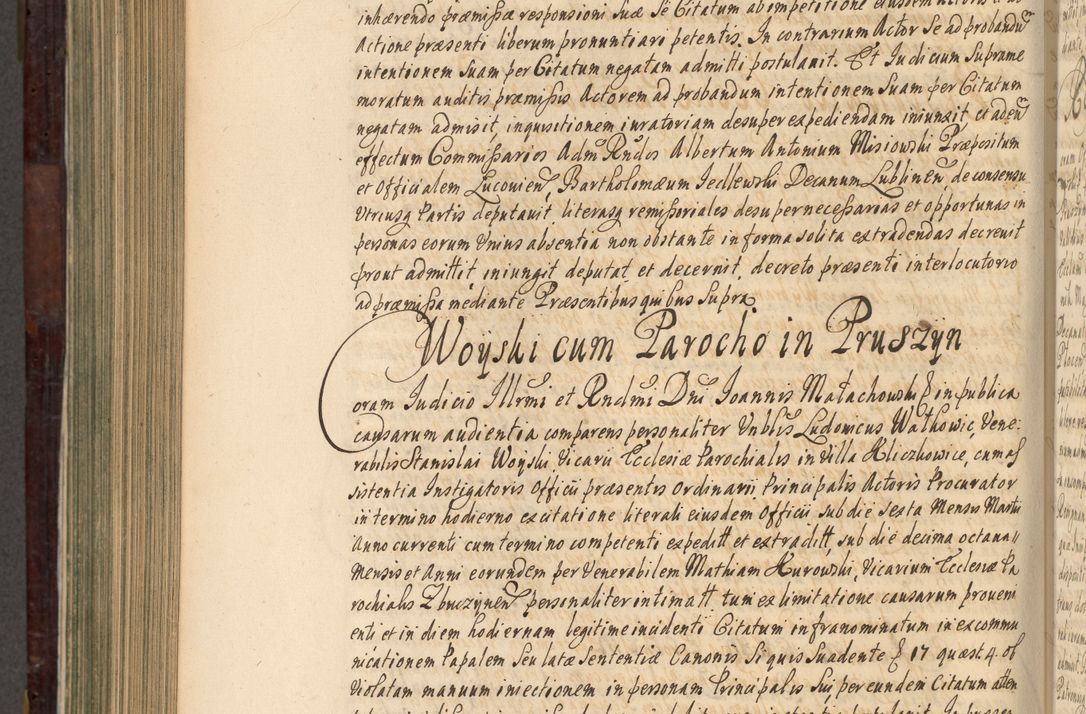 inhærendo præmissæ responsioni suæ se Citatum ab impetitione eiusdem Actoris
Actione præsenti liberum pronuntiari petentis. In contrarium Actor se ad probandũ
intentionem suam per Citatum negatam admitti postulavit. Et Iudicium supræme
moratum auditis præmissis Actorem ad probandum intentionem suam per Citatum
negatam admisit, inquisitionem iuratoriam desuper expediendam iniunxit et ad eum
effectum Commissarios Adm Rndos Albertum Antonium Misiowski Præpositum
et Officialem Lucovien, Bartholomæum Jedlewski Decanum Lublinen, de consensu
Utriusq partis deputavit literasq remissoriales desuper necessarias et opportunas in
personas eorum Unius absentia non obstante in forma solita extradendas decrevit
prout admittit, iniungit deputat et decernit, decreto præsenti interlocutorio
ad præmissa mediante Præsentibus quibus supra
Woyski cum Parocho in Pruszÿn
Coram Iudicio Illrmi et Rndmi Dni Ioannis Małachowski in publica
causarum audientia comparens personaliter Nblis Ludovicus Wałkowic, Vene:
rabilis Stanislai Woyski, Vicarii Ecclesiæ Parochialis in Villa Hliczkowice, cum as
sistentia Instigatoris Officii præsentis Ordinarii Principalis Actoris Procurator
in termino hodierno ex citatione literali eiusdem Officii sub die sexta Mensis Martii
Anno currenti cum termino competenti expeditt et extraditt, sub die decima octava
Mensis et Anni eorundem per Venerabilem Mathiam Kurowski, Vicarium Ecclesiæ Pa
rochialis Zbuczynen personaliter intimatt tum ex limitatione causarum proveni
enti et in diem hodiernam legitime incidenti Citatum infranominatum in excommu
nicationem Papalem seu latæ sententiæ Canonis Si quis suadente 17 quæst. 4. ob
Violatam manuum iniectionem in personam Principalis sui per eundem Citatum atten